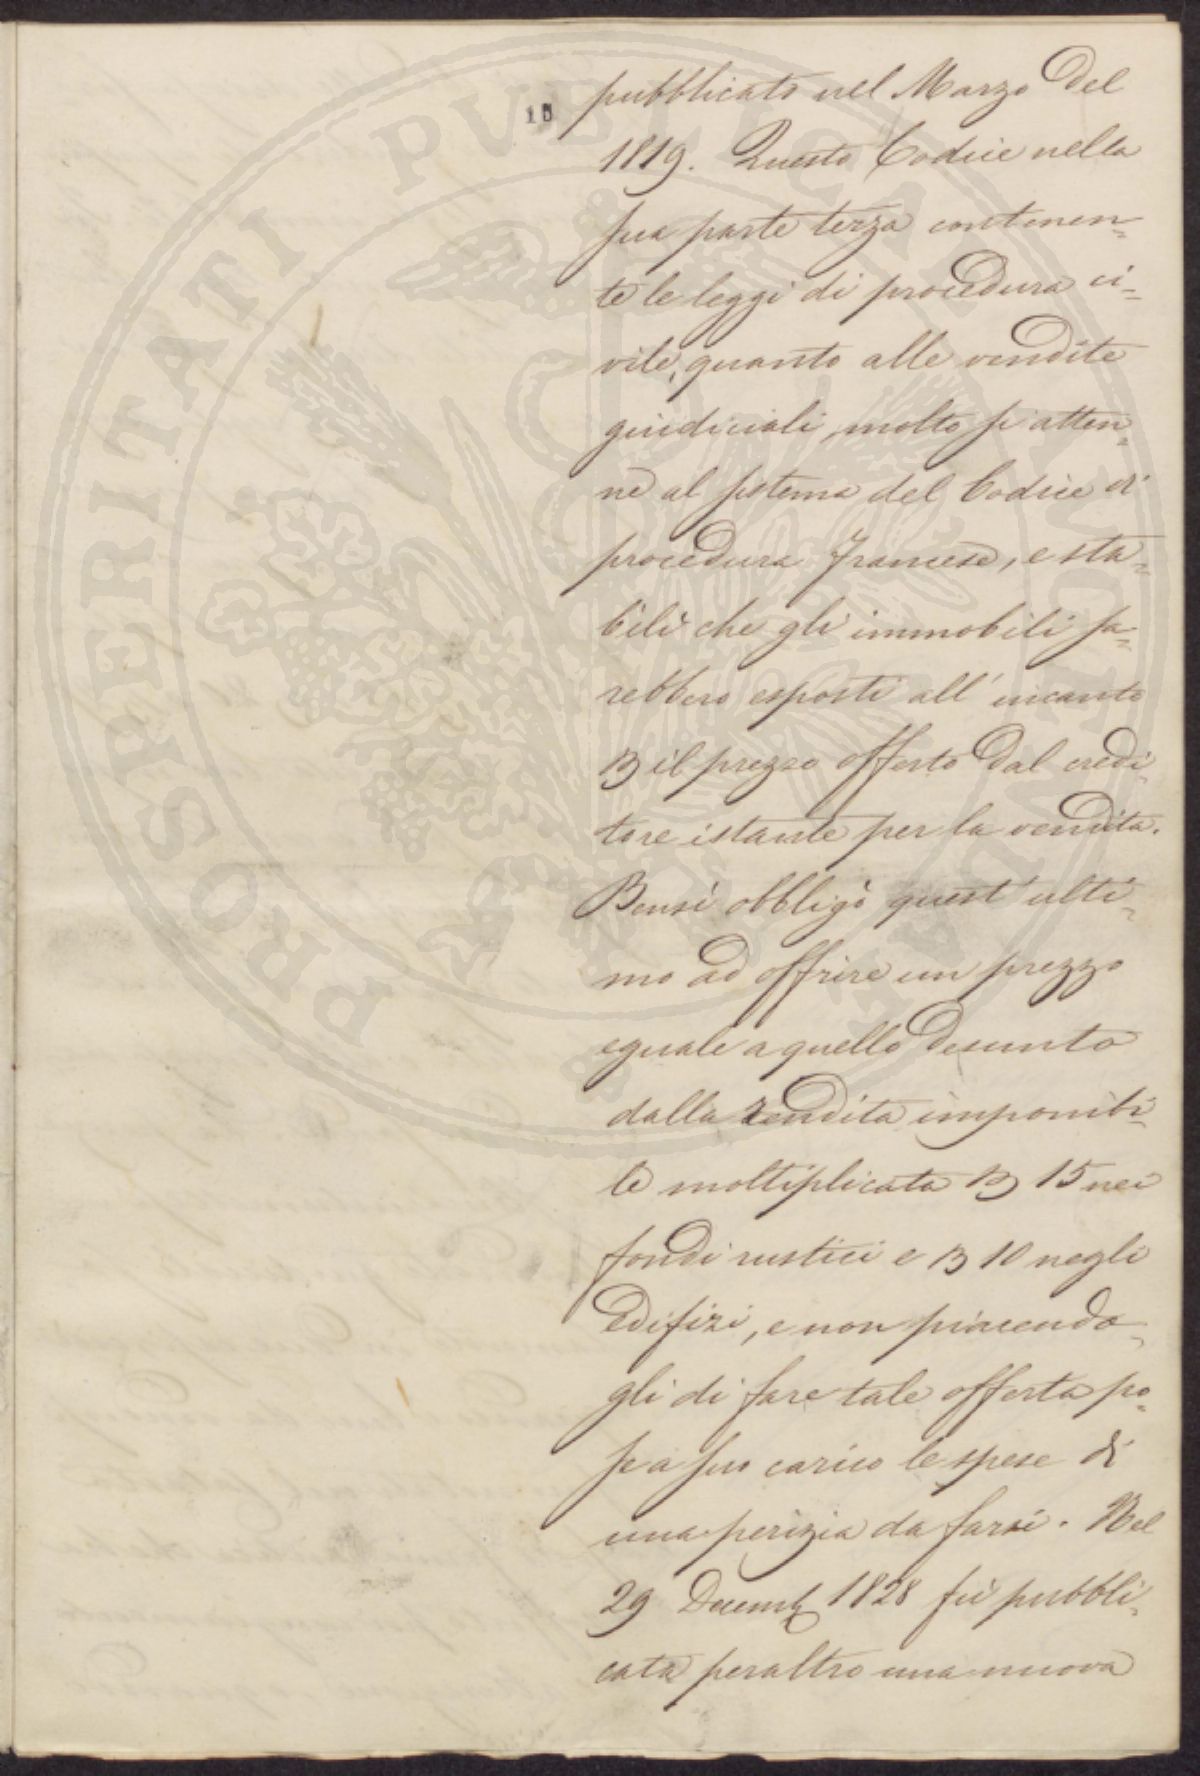 10
pubblicato nel Marzo del
1819. Questo Codice nella
sua parte terza contenen=
te le leggi di procedura ci=
vile, quanto alle vendite
giudiciali, molto si atten=
ne al sistema del Codice di
procedura Francese, e sta=
bilì che gli immobili sa=
rebbero esposti all' incanto
il prezzo offerto dal credi=
tore istante per la vendita.
Bensì obbligò quest' ulti=
mo ad offrire un prezzo
eguale a quello desunto
dalla rendita imponibi=
le moltiplicata 15 nei
fondi rustici e 10 negli
Edifizi, e non piacendo=
gli di fare tale offerta po=
se a suo carico le spese di
una perizia da farsi. Nel
29 Decemb 1828 fù pubbli=
cata peraltro una nuova
PROSPERITATI PUBLICAE AUGENDAE